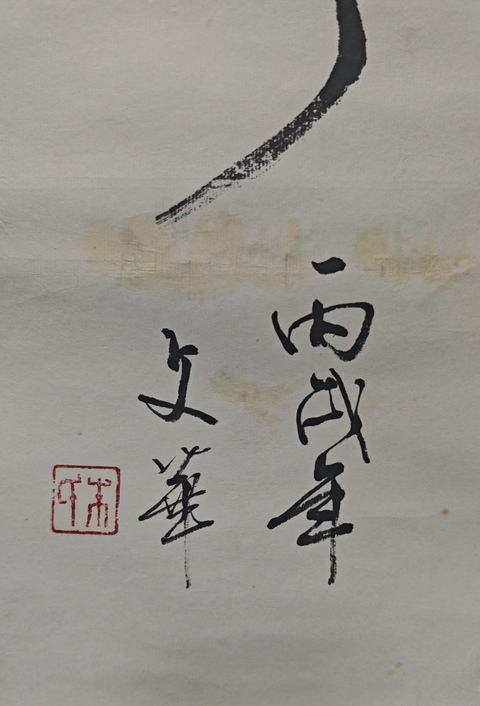 丙戌年
文華